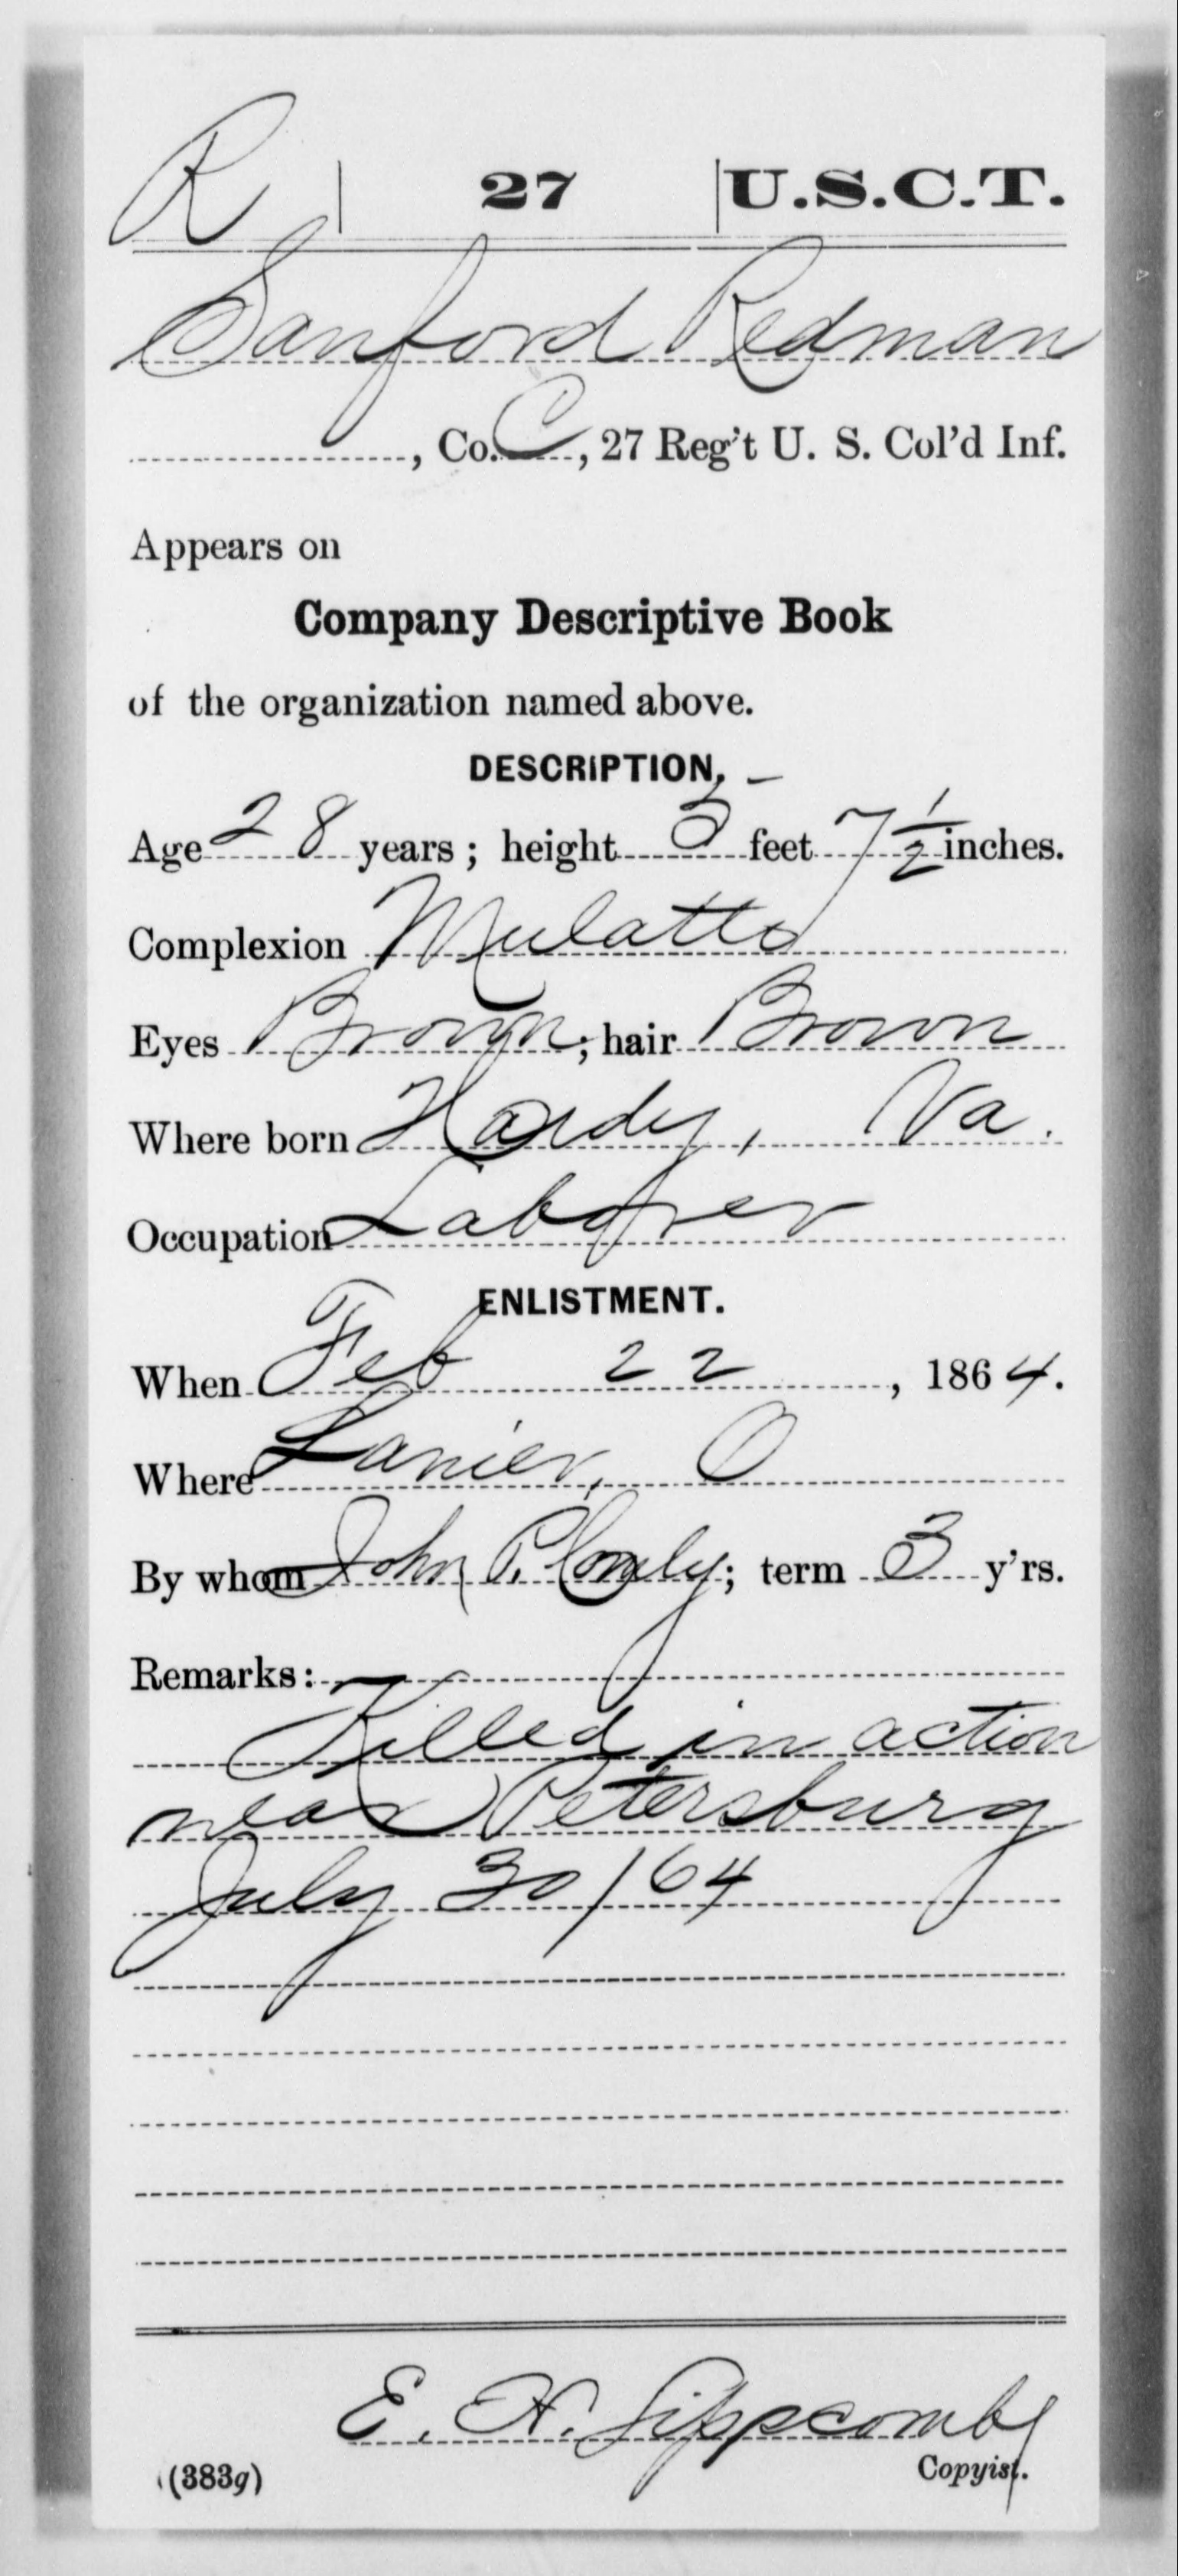 R | 27 | U.S.C.T.
Sanford Redman
, Co. C, 27 Reg't U. S. Col'd Inf.
Appears on
Company Descriptive Book
of the organization named above.
DESCRIPTION.
Age 28 years; height 5 feet 7 1/2 inches.
Complexion Mulatto
Eyes Brown; hair Brown
Where born Hardy, Va.
Occupation Laborer
ENLISTMENT.
When Feb 22, 1864.
Where Lanier, O
By whom John P. ; term 3 y'rs.
Remarks:
Killed in action
near Petersburg
July 30/64
E. H. Lippcomb
Copyist.
(383g)